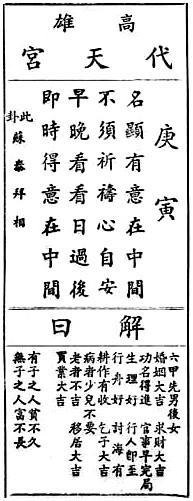 高雄
代天宮
庚寅
名顯有意在中間
不須祈禱心自安
早晚看看日過後
即時得意在中間
此卦
蘇秦拜相
解曰
六甲先男後女
婚姻大吉 求財大吉
功名得進 官事早完局
生理好 行人即至
行舟好 討海有
耕作有收 乞子大吉
病者少兒不要
老者不吉 移居大吉
買業大吉
有子之人貧不久
無子之人富不長